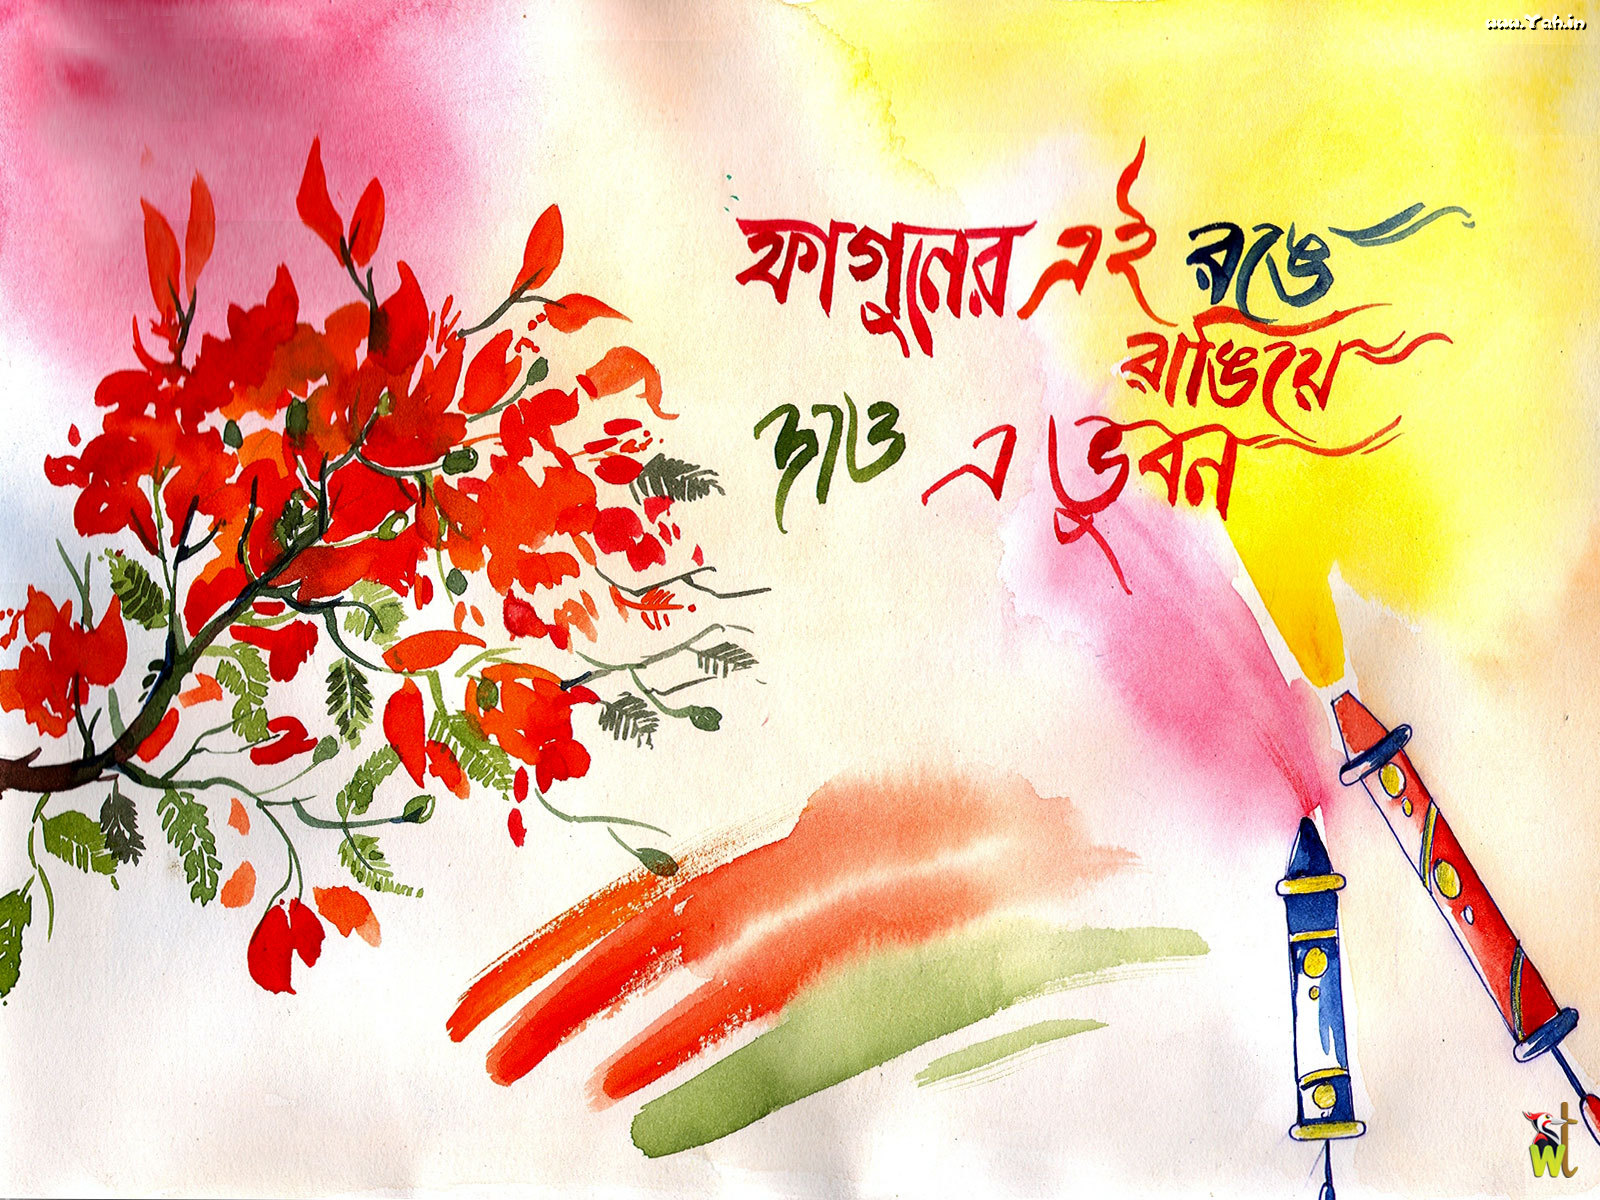 www.Yah.in
ফাগুনের এই রঙে
রাঙিয়ে
দাও এ ভুবন
wt